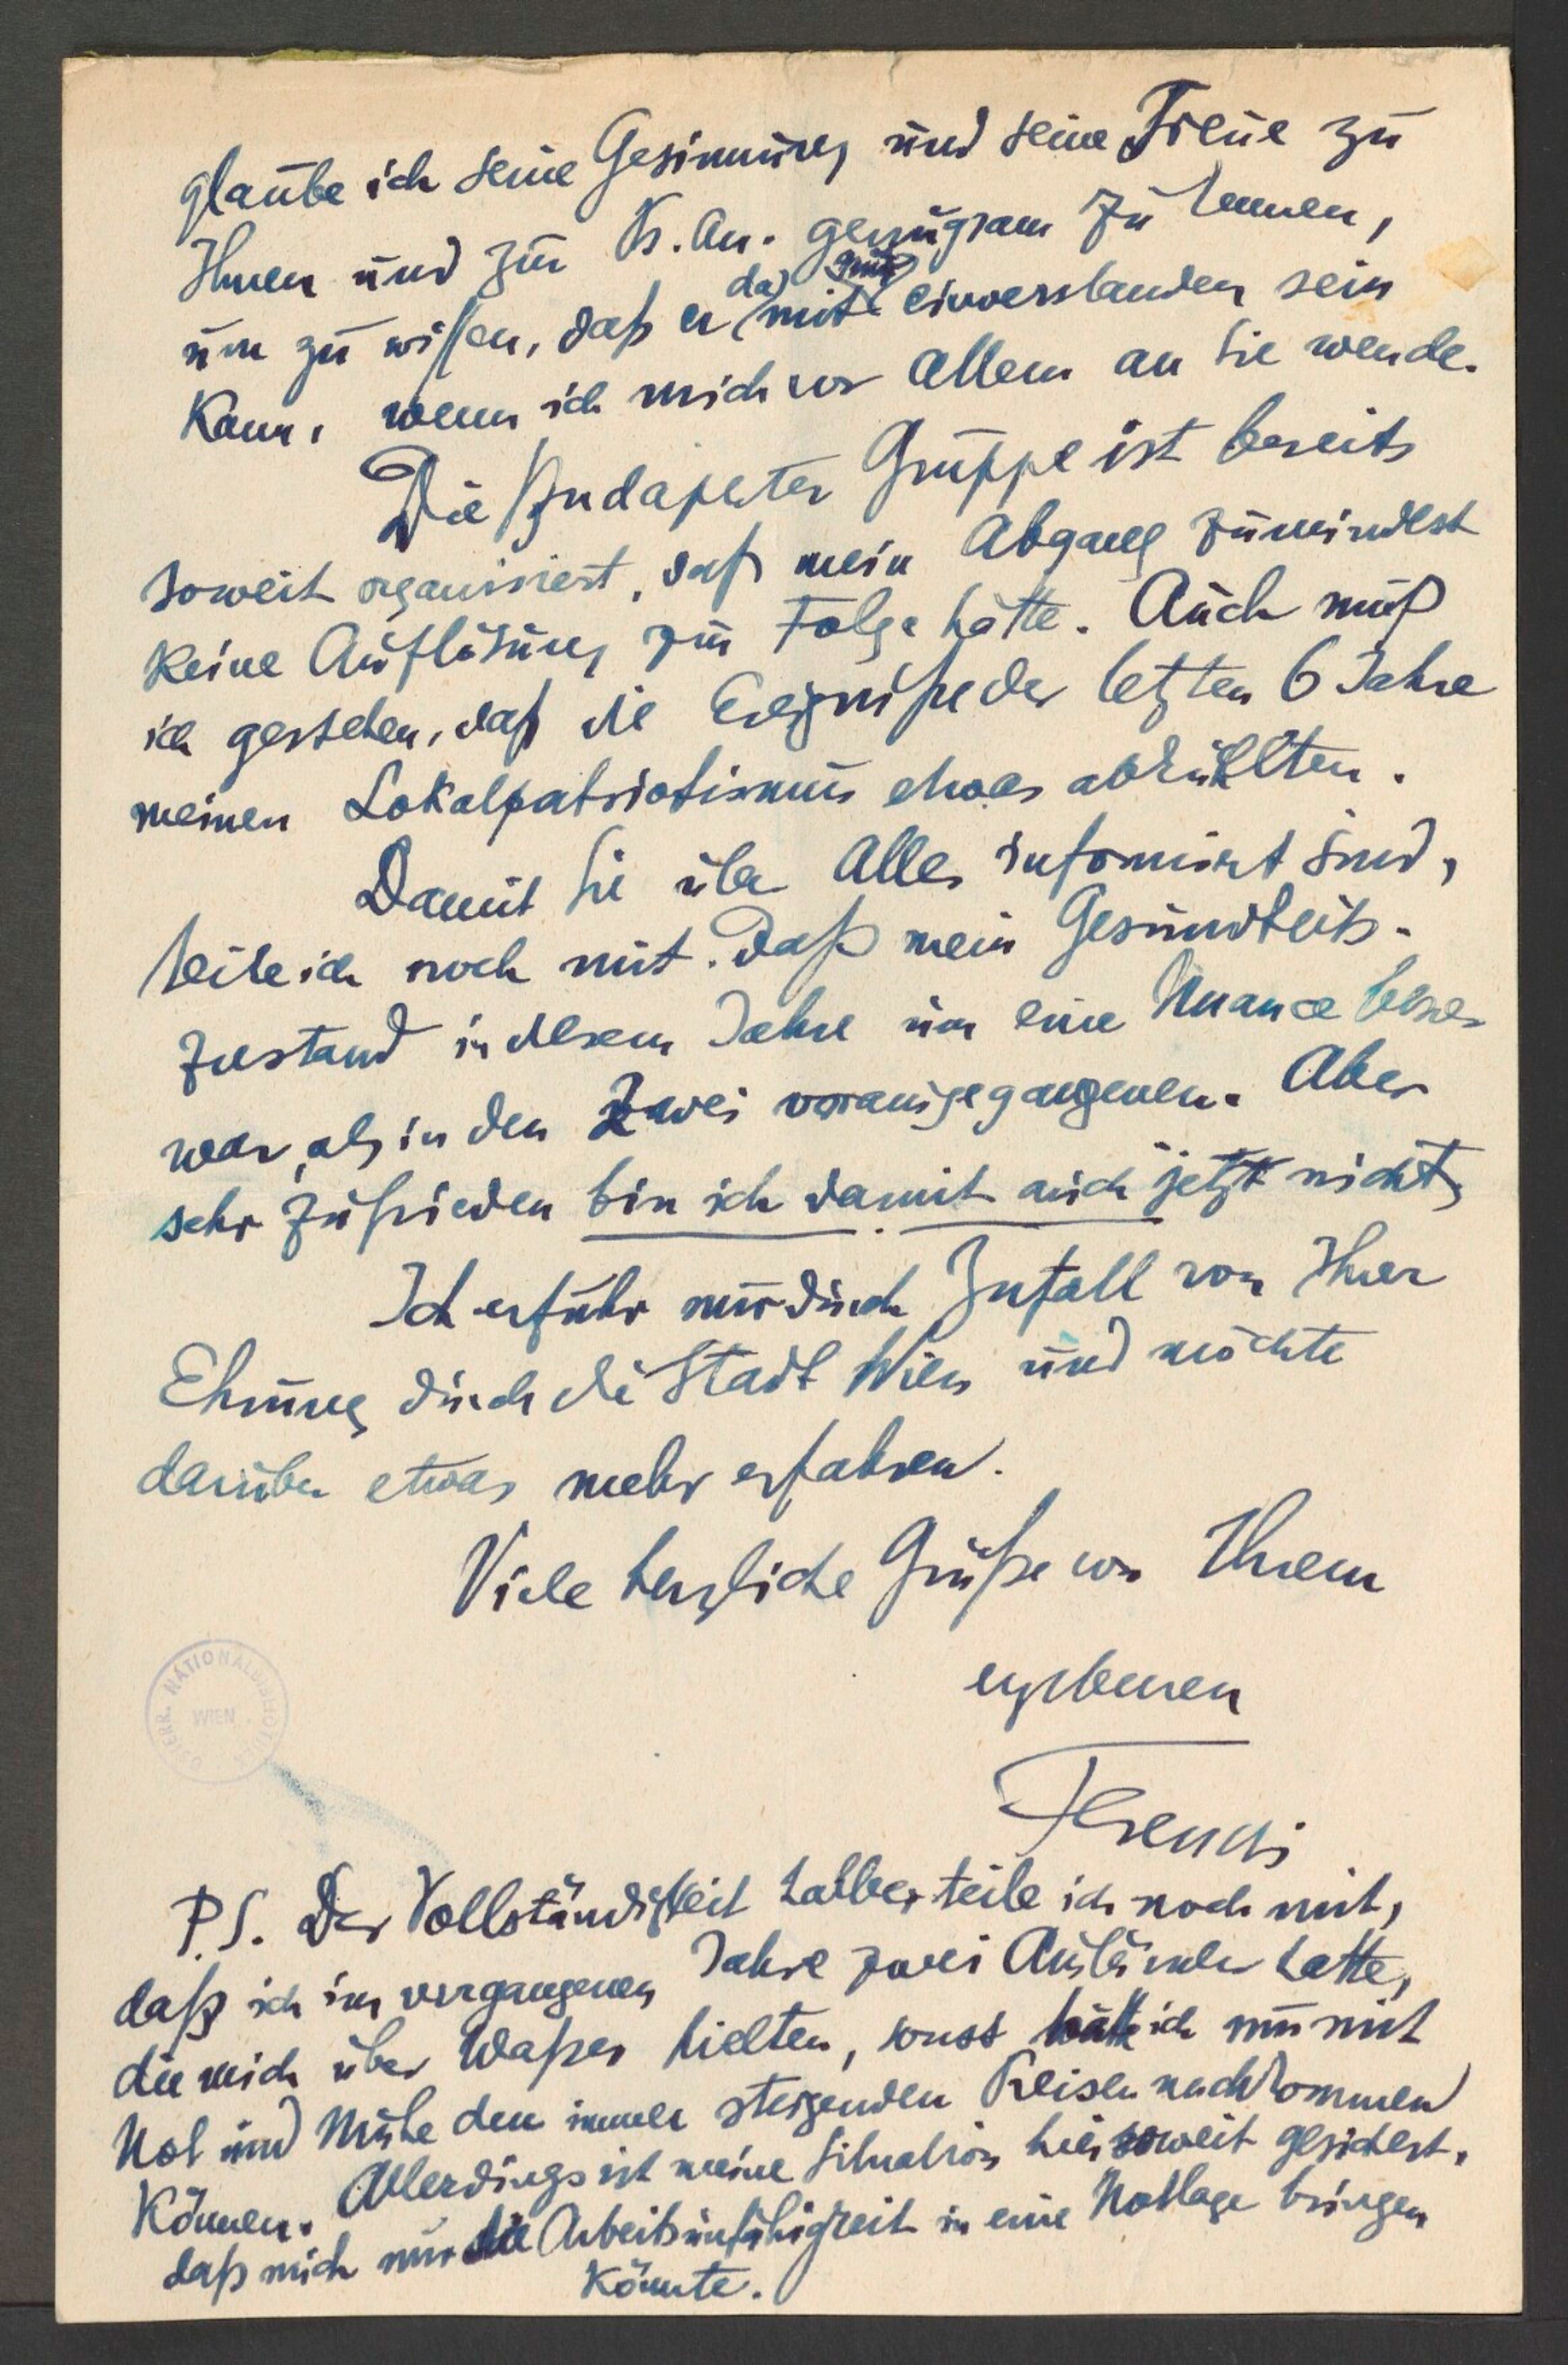 glaube ich seine Gesinnung und seine Treue zu
Ihnen und zur Ps. An. genugsam zu kennen,
um zu wissen, daß er damit einverstanden sein
kann, wenn ich mich vor Allem an Sie wende.
Die Budapester Gruppe ist bereits
soweit organisiert, daß mein Abgang zumindest
keine Auflösung zur Folge hätte. Auch muß
ich gestehen, daß die Ereignisse der letzten 6 Jahre
meinen Lokalpatriotismus etwas abkühlten.
Damit Sie über Alles informiert sind,
teile ich noch mit, daß mein Gesundheits-
zustand in diesem Jahre um eine Nuance besser
war, als in den zwei vorausgegangenen. Aber
sehr zufrieden bin ich damit auch jetzt nicht.
Ich erfuhr nur durch Zufall von Ihrer
Ehrung durch die Stadt Wien und möchte
darüber etwas mehr erfahren.
Viele herzliche Grüße von Ihrem
ergebenen
Ferenczi
ÖSTERR. NATIONALBIBLIOTHEK WIEN
P.S. Der Vollständigkeit halber teile ich noch mit,
daß ich im vergangenen Jahre zwei Ausländer hatte,
die mich über Wasser hielten, sonst hätte ich nur mit
Not und Mühe den immer steigenden Preisen nachkommen
können. Allerdings ist meine Situation hier soweit gesichert,
daß mich nur die Arbeitsunfähigkeit in eine Notlage bringen
könnte.